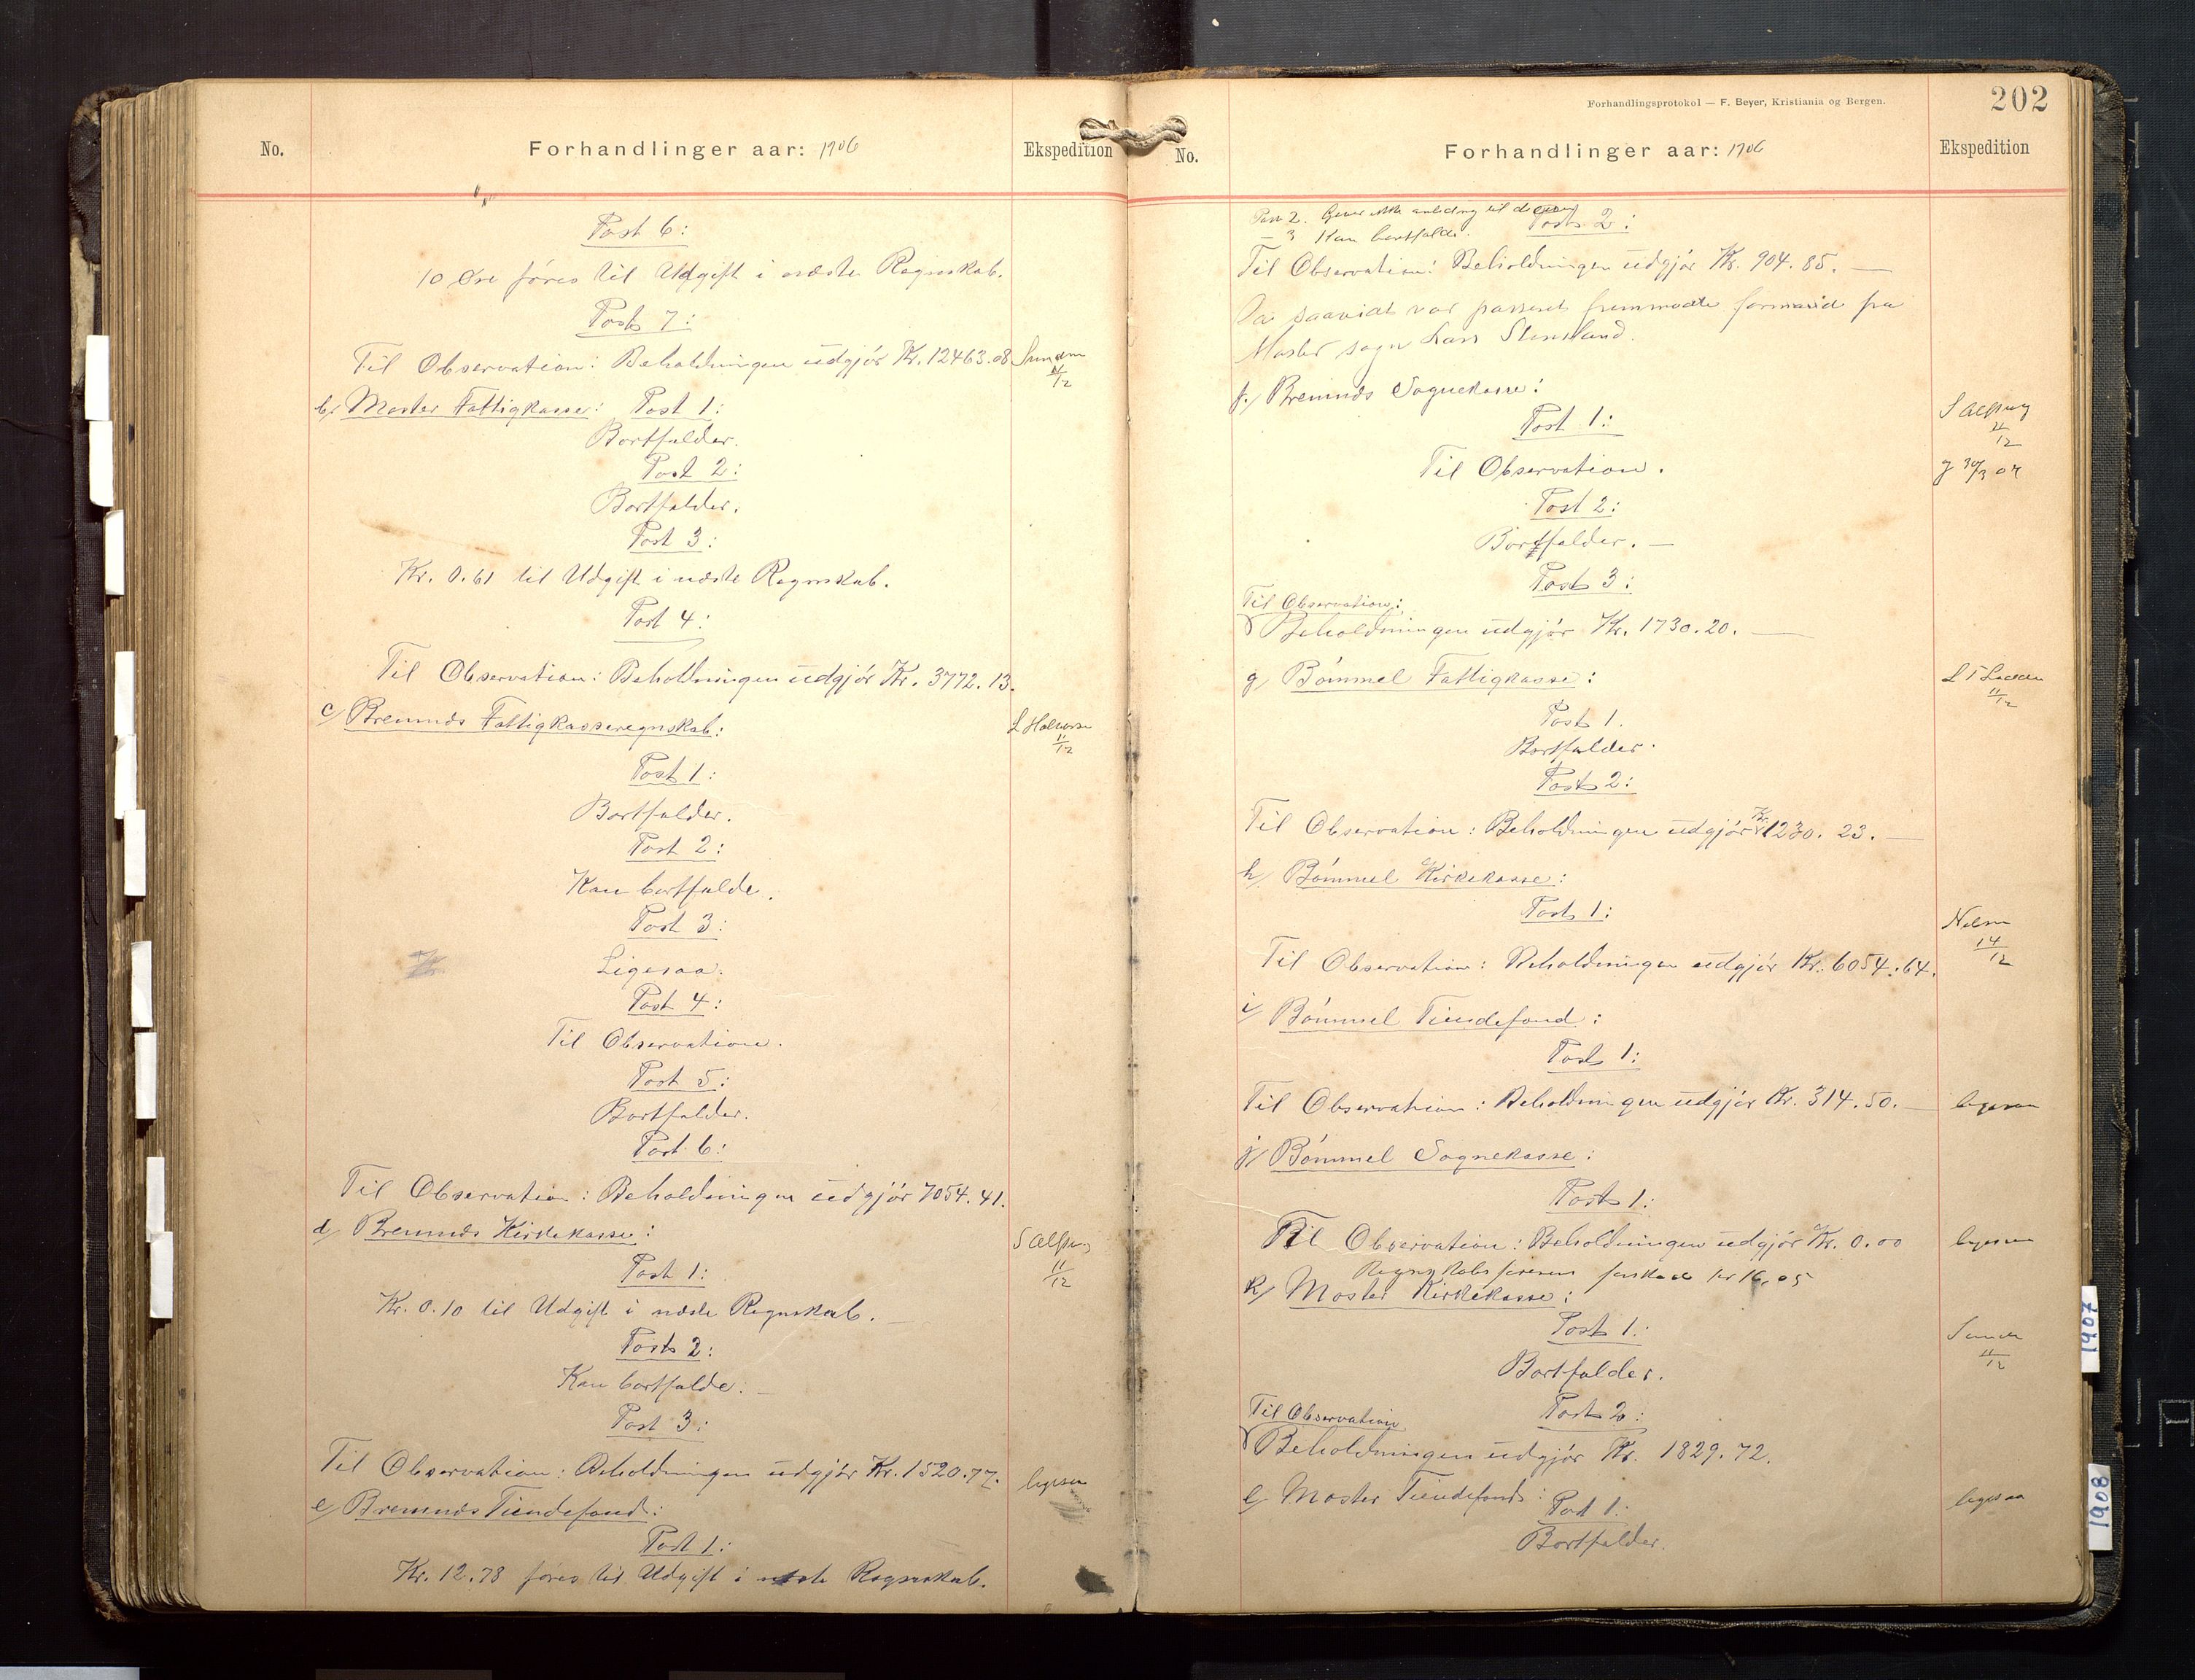 No.
Forhandlinger aar: 1906
Ekspedition
Post 6:
10 Øre føres til Udgift i næste Regnskab.
Post 7:
Til Observation: Beholdningen udgjør Kr. 12463.08
11/12
b/ Moster Fattigkasse: Post 1:
Bortfalder.
Post 2:
Bortfalder.
Post 3:
Kr. 0.61 til Udgift i næste Regnskab.
Post 4:
Til Observation: Beholdningen udgjør Kr. 3772.13.
c/ Bremnæs Fattigkasseregnskab:
L Halvorsen
11/12
Post 1:
Bortfalder.
Post 2:
Kan bortfalde.
Post 3:
Ligesaa.
Post 4:
Til Observation.
Post 5:
Bortfalder.
Post 6:
Til Observation: Beholdningen udgjør 7054.41.
d/ Bremnæs Kirkekasse:
11/12
Post 1:
Kr. 0.10 til Udgift i næste Regnskab.
Post 2:
Kan bortfalde.
Post 3:
Til Observation: Beholdningen udgjør Kr. 1520.77.
ligesaa
e/ Bremnæs Tiendefond:
Post 1:
Kr. 12.78 føres til Udgift i næste Regnskab.
Forhandlingsprotokol — F. Beyer, Kristiania og Bergen.
202
No.
Forhandlinger aar: 1906
Ekspedition
Post 2. Giver ikke anledning til
— 3 Kan bortfalde.
Post 2:
Til Observation: Beholdningen udgjør Kr. 904.85. —
Da saavidt var passeret fremmødte formand fra
Moster sogn Lars Stensland.
f/ Bremnæs Sognekasse:
Post 1:
11/12
Til Observation.
30/3 07
Post 2:
Bortfalder. —
Post 3:
Til Observation:
Beholdningen udgjør Kr. 1730.20. —
g/ Bømmel Fattigkasse:
11/12
Post 1.
Bortfalder.
Post 2:
Til Observation: Beholdningen udgjør Kr. 1230.23. —
h/ Bømmel Kirkekasse:
Post 1:
Nilsen
14/12
Til Observation: Beholdningen udgjør Kr. 6054.64.
i/ Bømmel Tiendefond:
Post 1:
Til Observation: Beholdningen udgjør Kr. 314.50. —
ligesaa
j/ Bømmel Sognekasse:
Post 1:
Til Observation: Beholdningen udgjør Kr. 0.00
ligesaa
Regnskabsførerens forskud kr 16,05
k/ Moster Kirkekasse:
Post 1:
11/12
Bortfalder.
Til Observation
Post 2:
Beholdningen udgjør Kr. 1829.72.
l/ Moster Tiendefond:
Post 1:
ligesaa
Bortfalder.
1907
1908